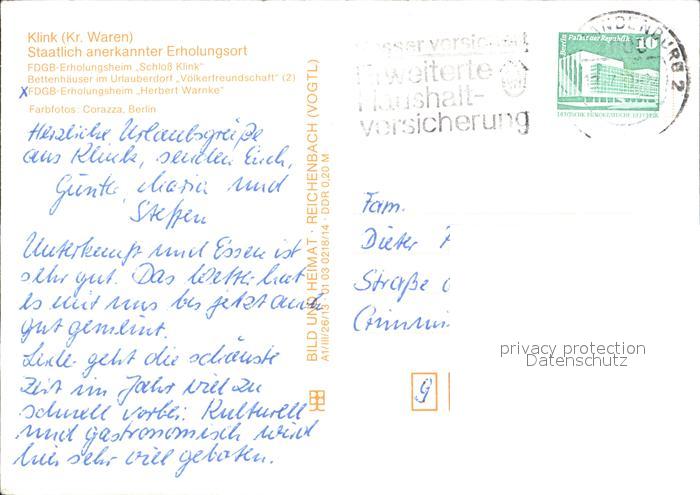 Klink (Kr. Waren)
Staatlich anerkannter Erholungsort
FDGB-Erholungsheim „Schloß Klink"
Bettenhäuser im Urlauberdorf „Völkerfreundschaft" (2)
X FDGB-Erholungsheim „Herbert Warnke"
Farbfotos: Corazza, Berlin
Herzliche Urlaubsgrüße
aus Klink, senden Euch,
Günter, Maria und
Steffen
Unterkunft und Essen ist
sehr gut. Das Wetter hat
es mit uns bis jetzt auch
gut gemeint.
Leider geht die schönste
Zeit im Jahr viel zu
schnell vorbei. Kulturell
und gastronomisch wird
hier sehr viel geboten.
BILD UND HEIMAT · REICHENBACH (VOGTL)
A1/III/26/13 · 01 03 0218/14 · DDR 0,20 M
besser versichert
Erweiterte
Haushalt-
versicherung
Berlin Palast der Republik
10
DEUTSCHE DEMOKRATISCHE REPUBLIK
BRANDENBURG 2
Fam.
Dieter
Straße
9
privacy protection
Datenschutz